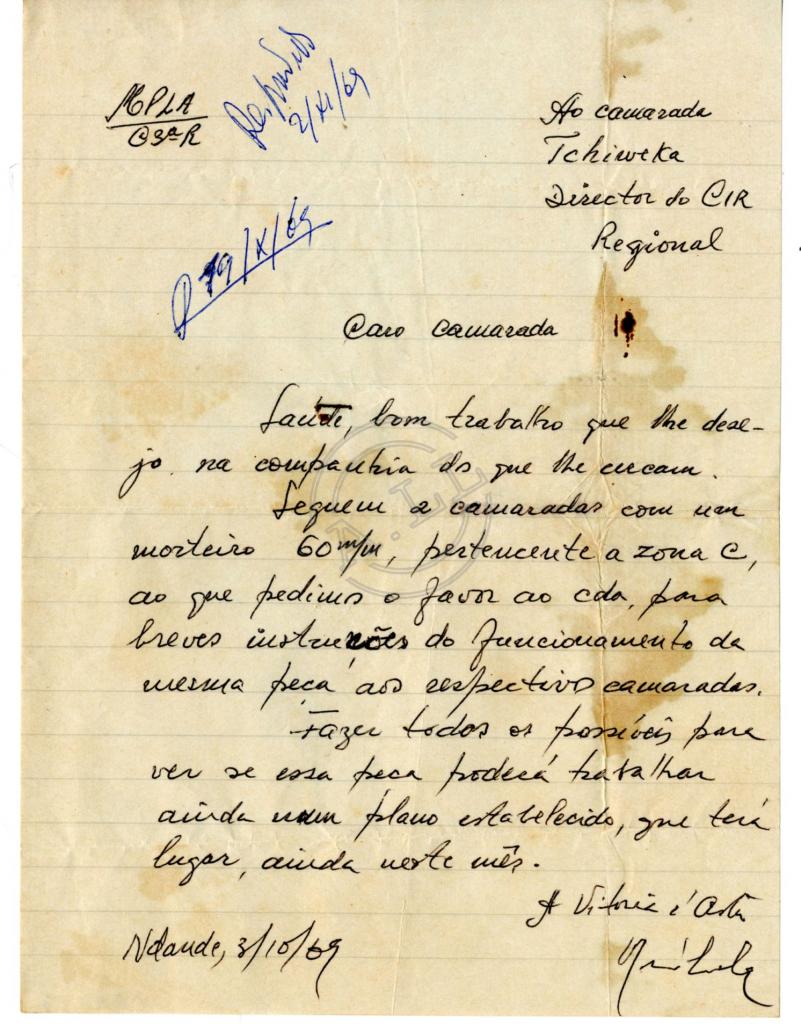 MPLA
3ª R
2/XI/69
19/X/69
Ao camarada
Tchiweka
Director do CIR
Regional
Caro camarada
Saúde, bom trabalho que lhe dese-
jo na companhia dos que lhe cercam.
Seguem 2 camaradas com um
morteiro 60 m/m, pertencente a zona C,
ao que pedimos o favor ao cda, para
breves instruções do funcionamento da
mesma peça aos respectivos camaradas.
Fazer todos os possíveis para
ver se essa peça poderá trabalhar
ainda num plano estabelecido, que terá
lugar, ainda neste mês.
A Vitória é
3/10/69